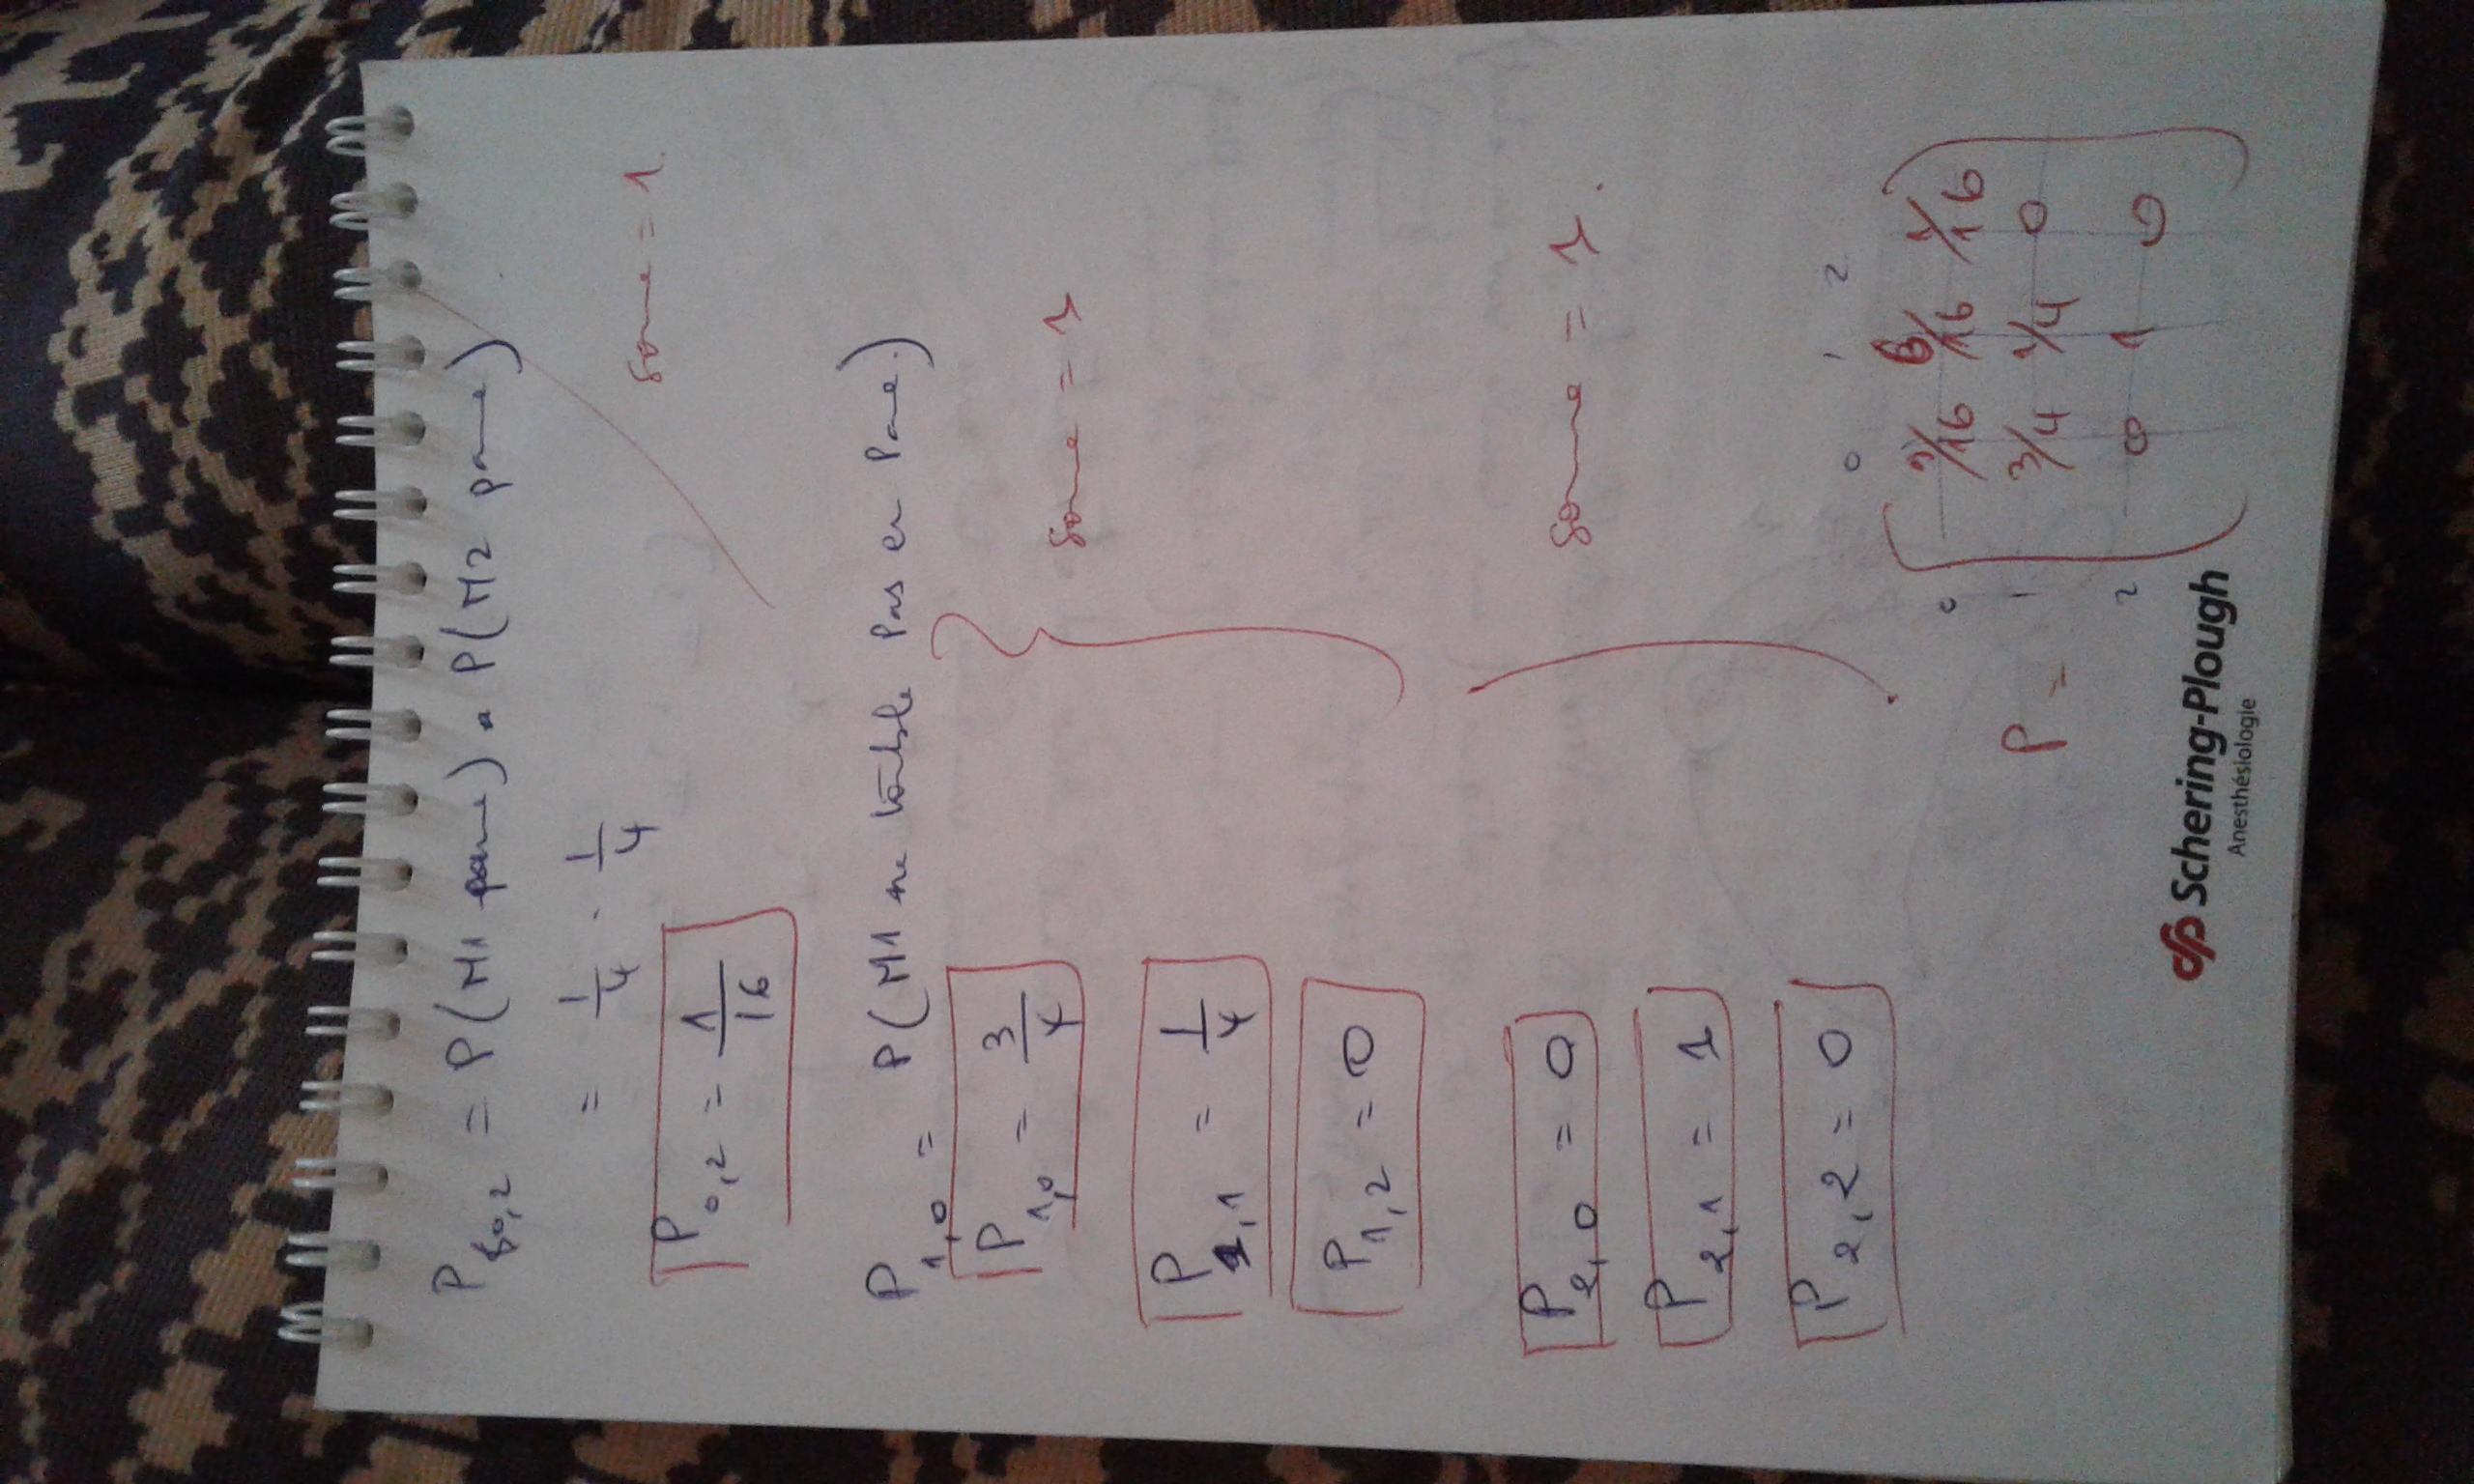 P0,2 = P(M1 panne) . P(M2 panne)
= 1/4 . 1/4
somme = 1.
P0,2 = 1/16
P1,0 = P(M1 ne tombe pas en panne.)
P1,0 = 3/4
somme = 1
P1,1 = 1/4
P1,2 = 0
P2,0 = 0
somme = 1.
P2,1 = 1
P2,2 = 0
0 1 2
0 9/16 6/16 1/16
P = 1 3/4 1/4 0
2 0 1 0
Schering-Plough
Anesthésiologie